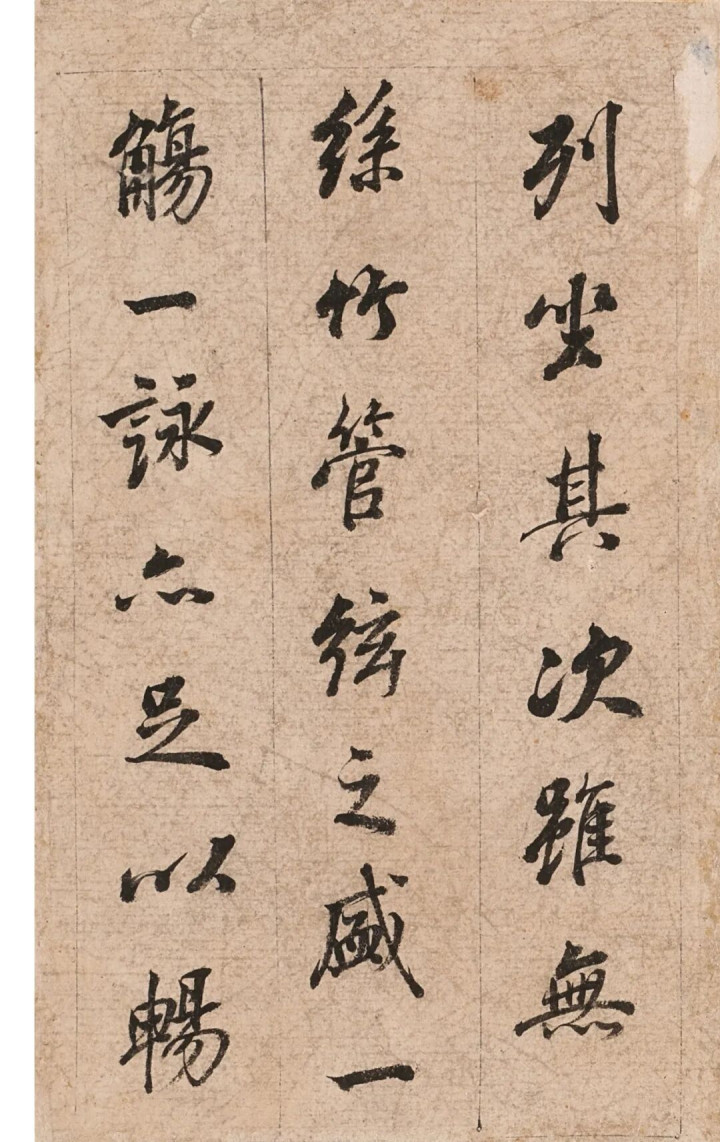 列坐其次雖無
絲竹管絃之盛一
觴一詠亦足以暢